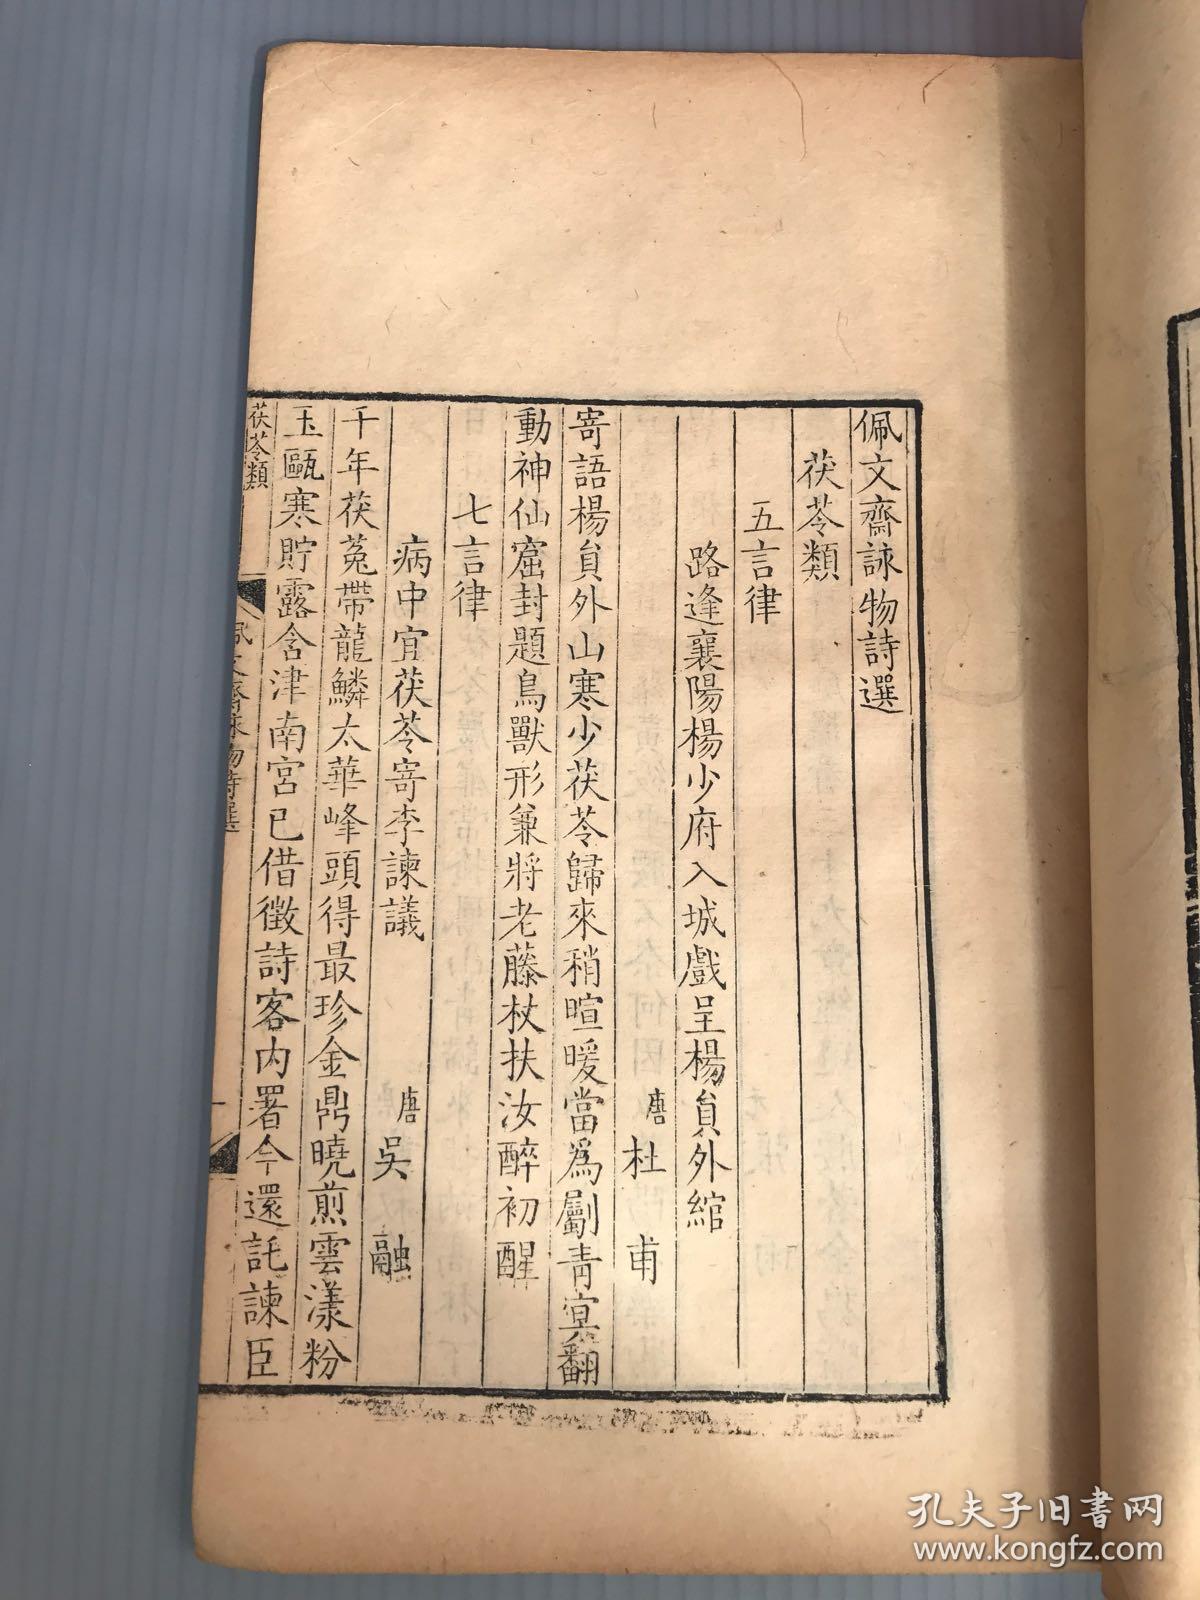 佩文齋詠物詩選
茯苓類
五言律
路逢襄陽楊少府入城戲呈楊員外綰
唐杜甫
寄語楊員外山寒少茯苓歸來稍暄暖當爲劚青冥翻
動神仙窟封題鳥獸形兼將老藤杖扶汝醉初醒
七言律
病中宜茯苓寄李諫議
唐吳融
千年茯菟帶龍鱗太華峰頭得最珍金鼎曉煎雲漾粉
玉甌寒貯露含津南宮已借徵詩客內署今還託諫臣
茯苓類
佩文齋詠物詩選
孔夫子旧书网
www.kongfz.com